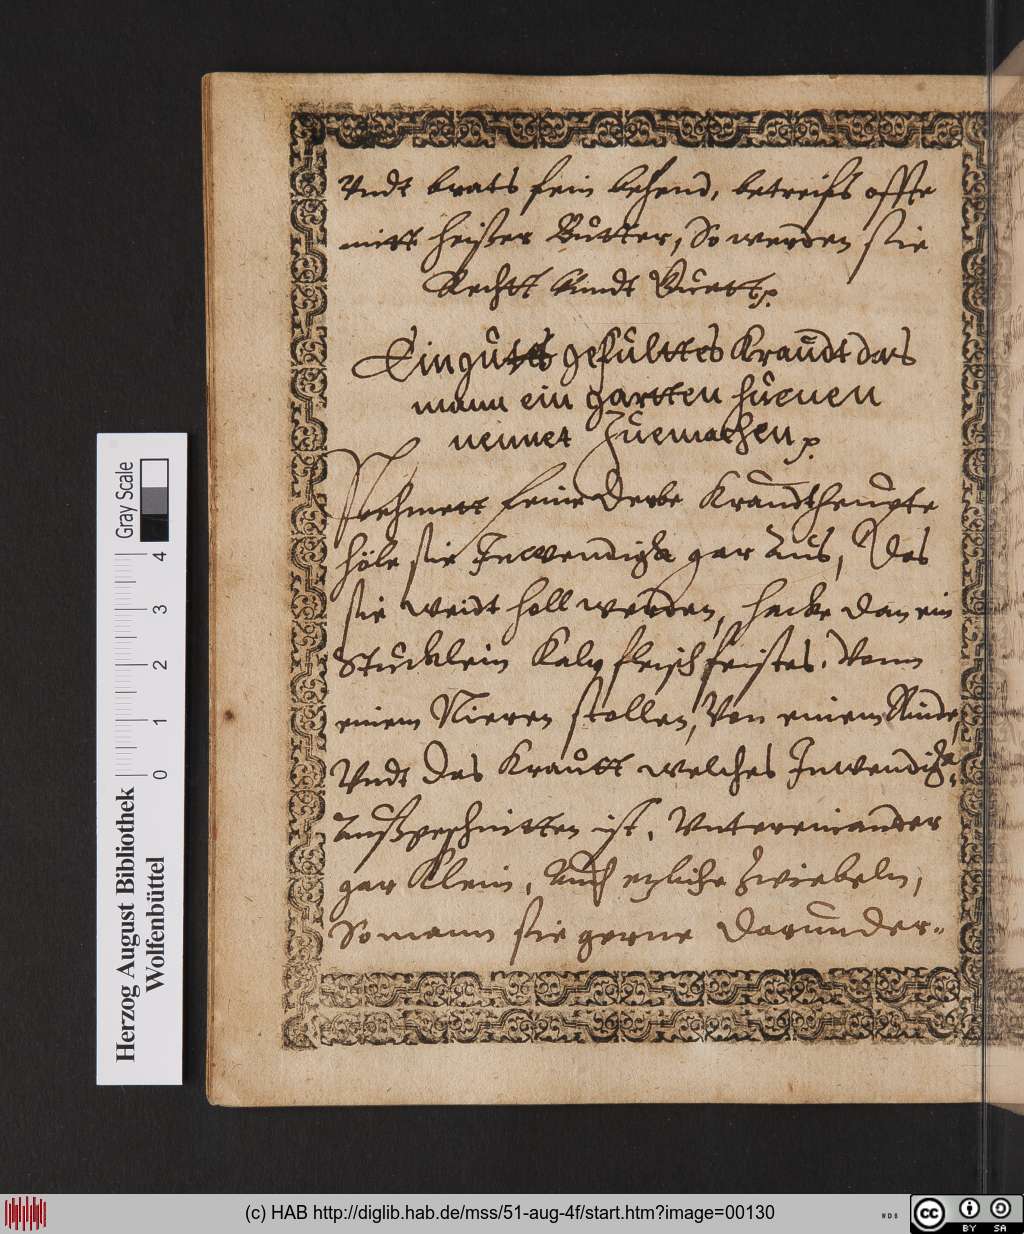 Vndt brats fein behend, betreifs offte
mitt heißer Bůtter, So werden sie
Rechtt Vnndt Guett p.
Ein gůttes gefůlttes Kraůdt das
mann ein gartten hůenen
nennet Zůemachen p.
Nehmett feine Derbe Kraůdtheůpte
höle sie Inwendigk gar Aus, Das
sie weidt holl werden, hacke dan ein
Stůcklein Kalb fleisch feistes, Vonn
einem Nieren stollen, Von einem Rinde,
Vndt Das Kraůtt welches Inwendigk,
Außgeschnitten ist, Vntereinander
gar Klein, Auch etzliche Zwiebeln,
So mann sie gerne Darůnder-
Gray Scale
4
3
2
1
0
Herzog August Bibliothek
Wolfenbüttel
(c) HAB http://diglib.hab.de/mss/51-aug-4f/start.htm?image=00130
WDB
cc
BY SA